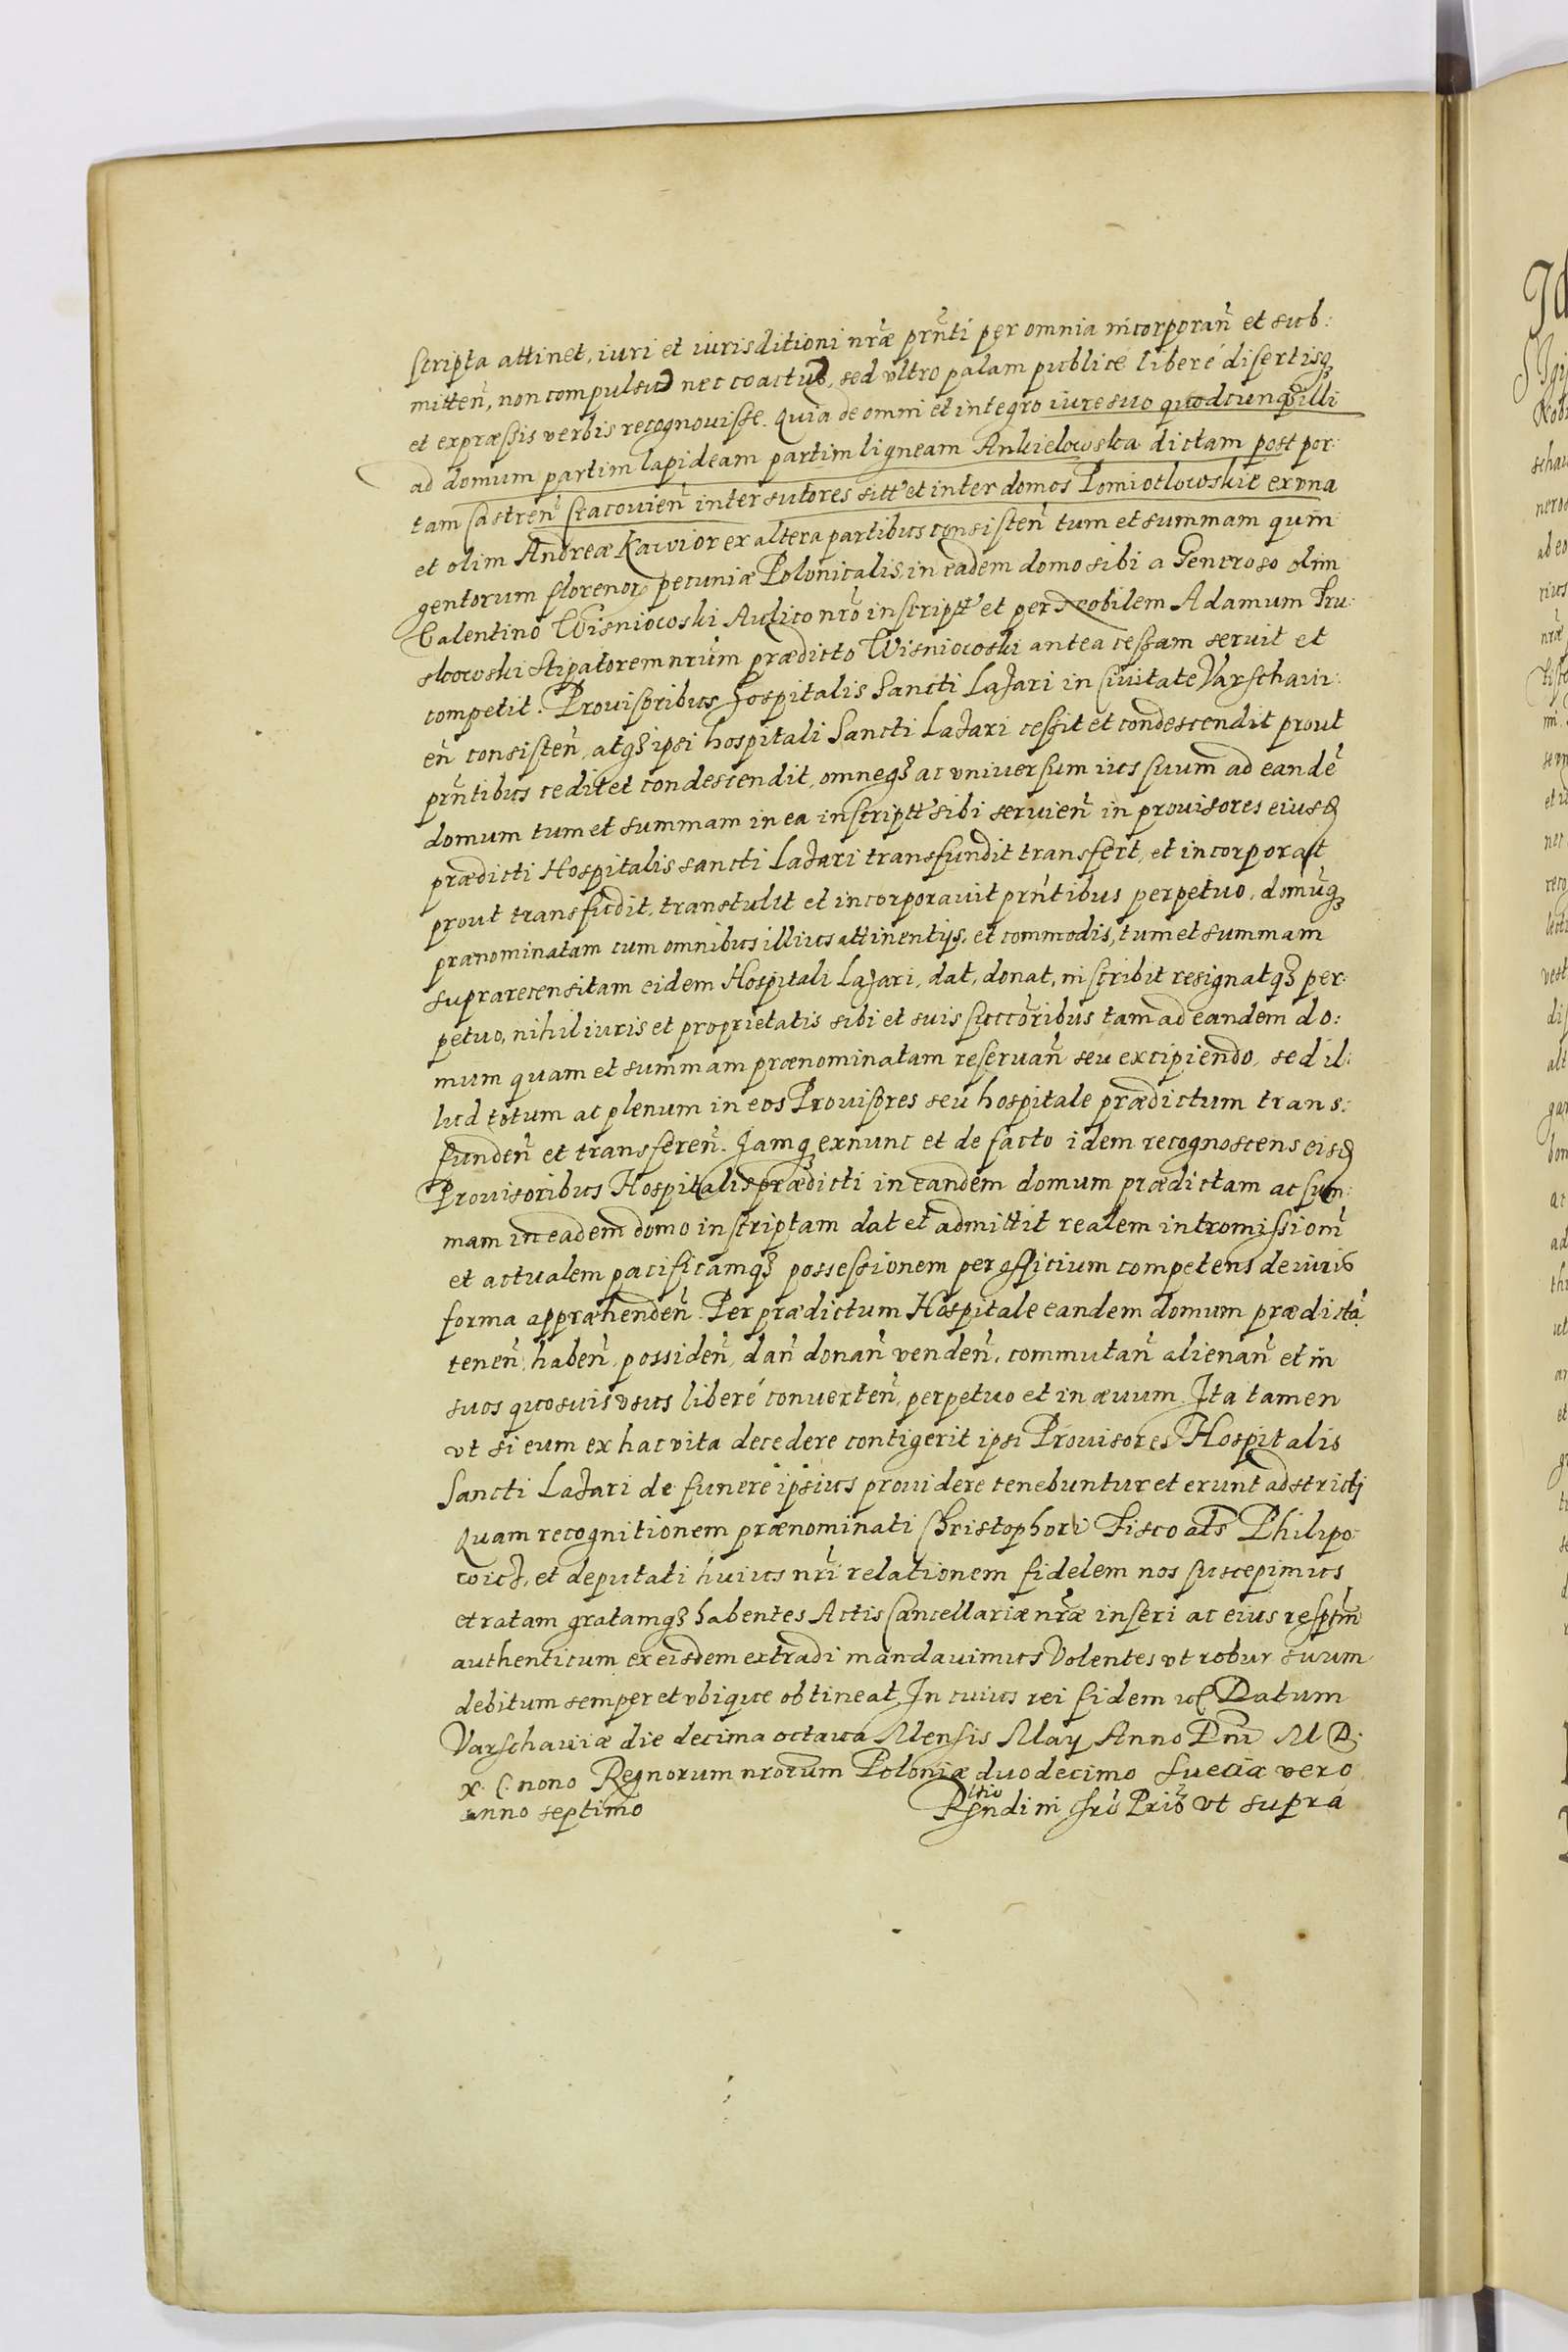 scripta attinet, iuri et iurisditioni nr̃æ prñti per omnia incorporañ et sub:
mitteñ, non compulsus nec coactus, sed vltro palam publicè liberè disertisqꝫ
et expræssis verbis recognouisse. Quia de omni et integro iure suo quodcunqꝫ illi
ad domum partim lapideam partim ligneam Ankielowska dictam post por:
tam Castreñ Cracouieñ inter sutores sitt' et inter domos Pomiotlowskie ex vna
et olim Andreæ Kawior ex altera partibus consisteñ tum et summam quin
gentorum florenoꝝ pecuniæ Polonicalis in eadem domo sibi a Generoso olim
Valentino Wisniowski Aulico nrõ inscriptt' et per Nobilem Adamum Tru
skowski Stipatorem nrũm prædicto Wisniowski antea cessam seruit et
competit. Prouisoribus Hospitalis Sancti Lazari in Ciuitate Varschaui:
eñ consisteñ, atqꝫ ipsi hospitali Sancti Lazari cessit et condescendit prout
prñtibus cedit et condescendit, omneqꝫ ac vniuersum ius suum ad eandẽ
domum tum et summam in ea inscriptt' sibi seruieñ in prouisores eiusđ
prædicti Hospitalis sancti Lazari transfundit transfert, et incorporat
prout transfudit, transtulit et incorporauit prñtibus perpetuo, domũqꝫ
prænominatam cum omnibus illius attinentijs, et commodis, tum et summam
suprarecensitam eidem Hospitali Lazari, dat, donat, inscribit resignatqꝫ per:
petuo, nihil iuris et proprietatis sibi et suis succõribus tam ad eandem do:
mum quam et summam prænominatam reseruañ seu excipiendo, sed il:
lud totum ac plenum in eos Prouisores seu hospitale prædictum trans:
fundeñ et transfereñ. Jamqꝫ exnunc et de facto idem recognoscens eisđ
Prouisoribus Hospitalis prædicti in eandem domum prædictam ac sum:
mam in eadem domo inscriptam dat et admittit realem intromissionẽ
et actualem pacificamqꝫ possessionem per officium competens de iuris
forma appræhendeñ. Per prædictum Hospitale eandem domum prædictã
teneñ, habeñ, possideñ, dañ donañ vendeñ, commutañ alienañ et in
suos quosuis vsus liberè conuerteñ, perpetuo et in æuum. Ita tamen
vt si eum ex hac vita decedere contigerit ipsi Prouisores Hospitalis
Sancti Lazari de funere ipsius prouidere tenebuntur et erunt adstricti
Quam recognitionem prænominati Christophori Fisco als Philipo:
wicz, et deputati huius nrĩ relationem fidelem nos suscepimus
et ratam gratamqꝫ habentes Actis Cancellariæ nr̃æ inseri ac eius resptm̃
authenticum ex eisdem extradi mandauimus Volentes vt robur suum
debitum semper et vbique obtineat, In cuius rei fidem ꝛc Datum
Varschauiæ die decima octaua Mensis Maij Anno Dnĩ M D.
X. C. nono Regnorum nrorum Poloniæ duodecimo Sueciæ vero
anno septimo
vt supra